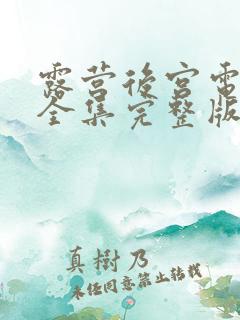 露营后宫電
全集完整版
真樹乃
未经同意禁止转载